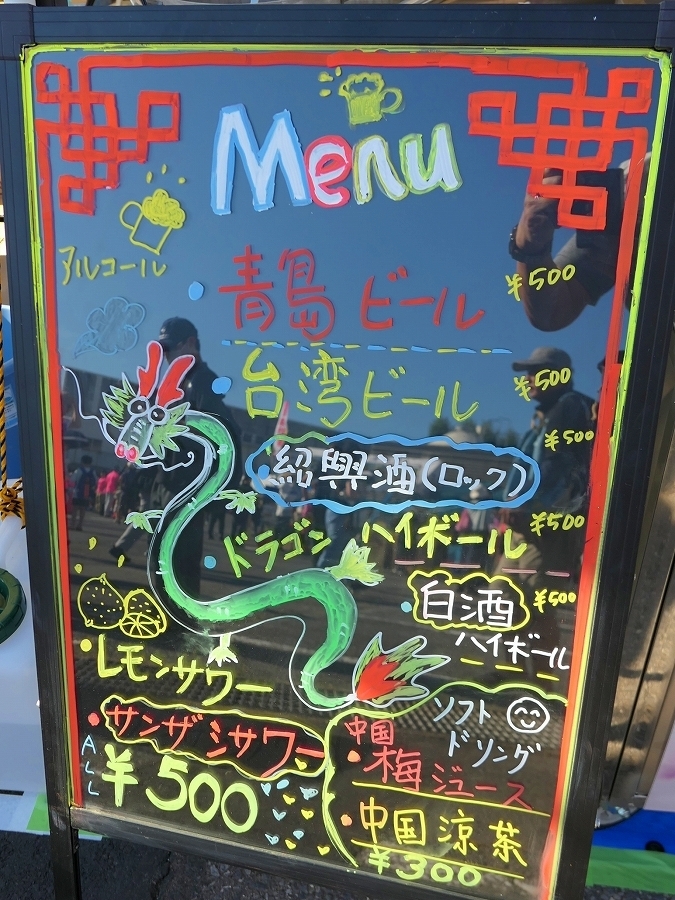 Menu
アルコール
・青島ビール ¥500
・台湾ビール ¥500
・紹興酒(ロック) ¥500
・ドラゴン ハイボール ¥500
・白酒 ¥500
ハイボール
・レモンサワー
・サンザシサワー
ALL
¥500
ソフト
ドリング
中国
・梅ジュース
・中国涼茶
¥300